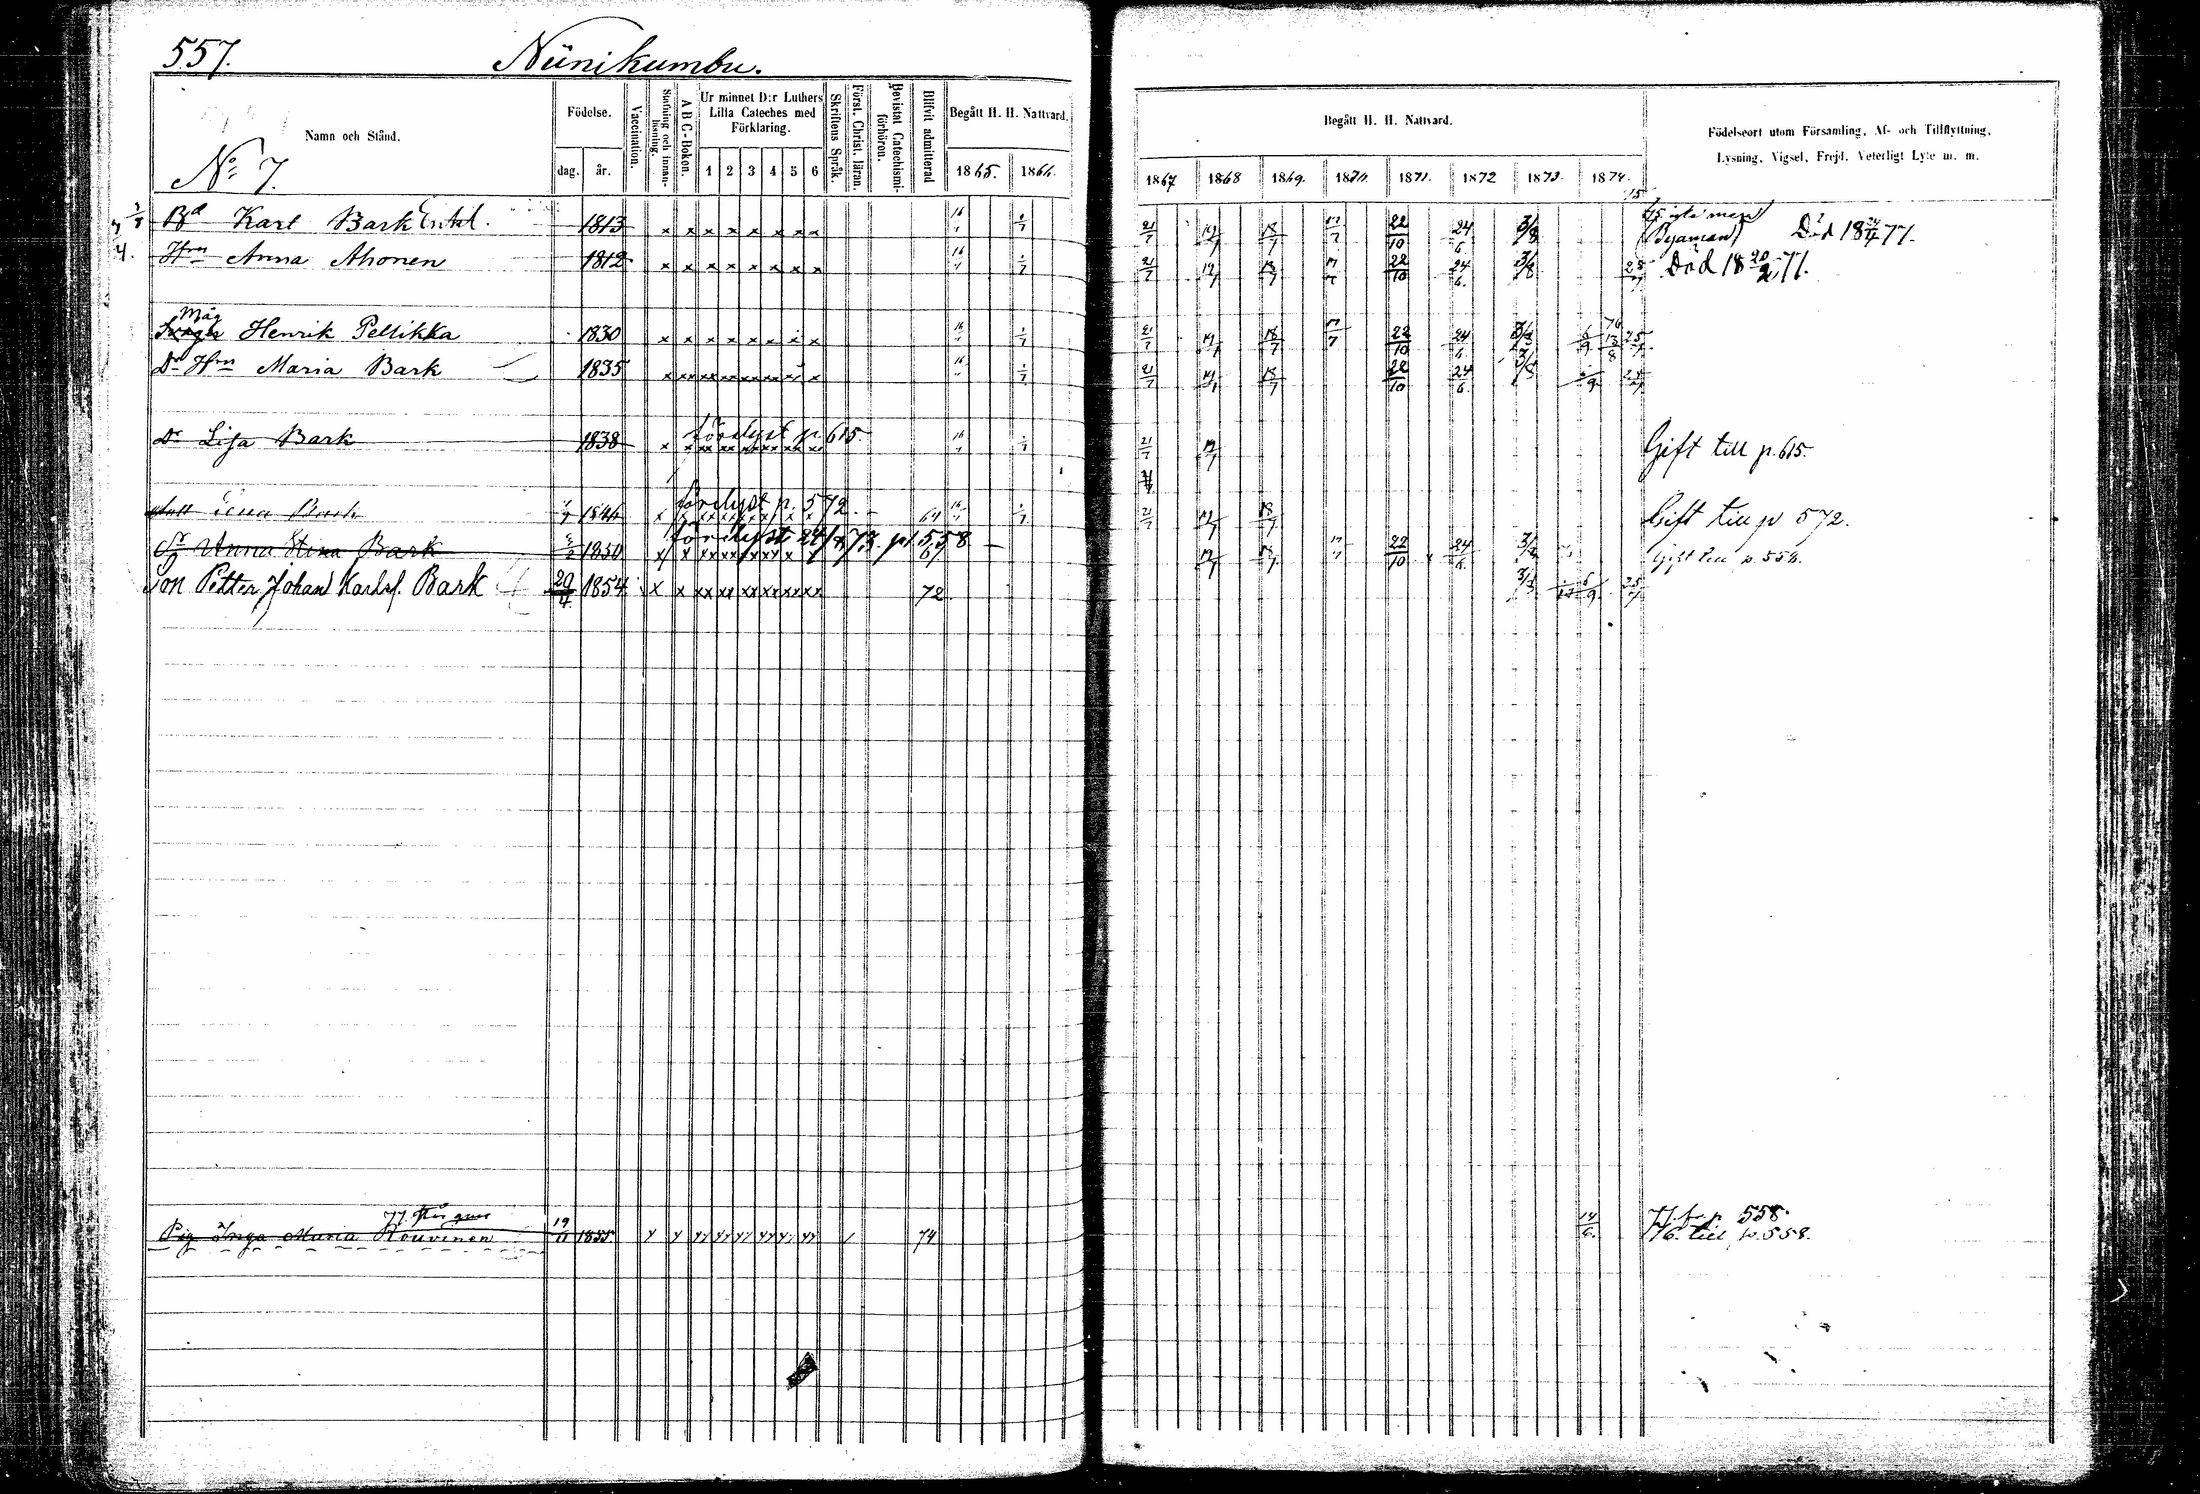 557. Niinikumbu.
Namn och Stånd. Födelse. Vaccination. Stafning och innanläsning. A B C-Boken. Ur minnet D:r Luthers Lilla Cateches med Förklaring. Skriftens Språk. Först. Christ. läran. Bevistat Catechismiförhören. Blifvit admitterad Begått H. H. Nattvard. Begått H. H. Nattvard. Födelseort utom Församling, Af- och Tillflyttning, Lysning, Vigsel, Frejd, Veterligt Lyte m. m.
No 7. dag. år. 1 2 3 4 5 6 1865. 1866. 1867 1868 1869. 1870. 1871. 1872 1873. 1874.
Bd Karl Bark Enkl. 1813 x x x x x x x x 16/7 1/7 21/7 12/7 18/7 17/7 22/10 24/6 3/8 (Byaman) Död 18 24/4 77.
4. Hru Anna Ahonen 1812 x x x x x x x x 16/7 1/7 21/7 12/7 18/7 17/7 22/10 24/6 3/8 25/7 Död 18 20/2 77.
Måg
Henrik Pellikka 1830 x x x x x x x x 16/7 1/7 21/7 12/7 18/7 17/7 22/10 24/6 3/8 6/9 76 13/8 25/7
Dr Hru Maria Bark 1835 x xx xx xx xx xx xx x 16/7 1/7 21/7 12/7 18/7 22/10 24/6 3/8 6/9 25/7
Dr Lisa Bark 1838 x förelyst p. 615. 16/7 1/7 21/7 12/7 Gift till p. 615.
Lena Bark 1846 x förelyst p. 572. 64 16/7 1/7 21/7 12/7 18/7 Gift till p 572.
Dr Anna Stina Bark 1850 förelyst 24/8 73. p. 558 67 12/7 18/7 17/7 22/10 24/6 3/8 Gift till p. 558.
Son Petter Johan Karlsf. Bark 20/4 1854 x x xx xx xx xx xx xx 72 3/8 6/9 25/7
77.
Pig Inga Maria Rouvinen 19/11 1855 74 14/6 77 p. 558.
76. till p. 558.